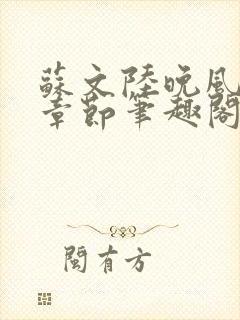 蘇文陸晚風
章節筆趣閣
閩有方